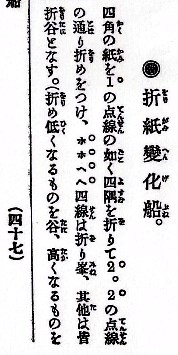 ◉折紙變化船。
四角の紙を1の点線の如く四隅を折りて2。2の点線
の通り折めをつけ、**へへ四線は折り峯、其他は皆
折谷となす。(折め低くなるものを谷、高くなるものを
(四十七)